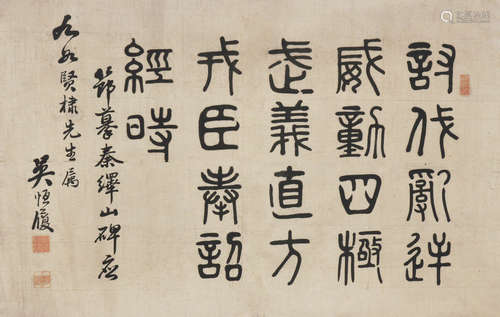 討伐亂逆
威動四極
武義直方
戎臣奉詔
經時
節摹秦繹山碑應
九如賢棣先生屬
吳恒